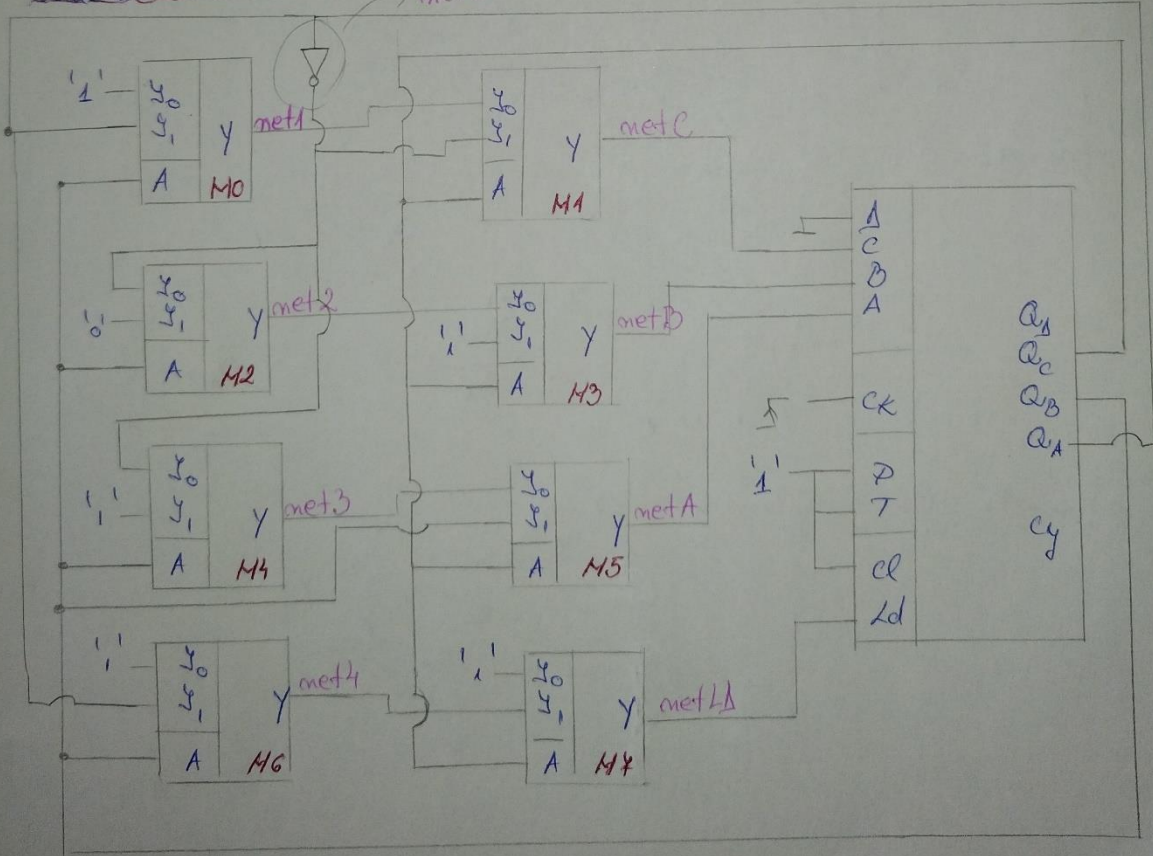 '1'
I0
I1
Y
A
M0
net1
I0
I1
Y
A
M1
netC
I0
'0'
I1
Y
A
M2
net2
I0
'1'
I1
Y
A
M3
netB
I0
'1'
I1
Y
A
M4
net3
I0
I1
Y
A
M5
netA
'1'
I0
I1
Y
A
M6
net4
'1'
I0
I1
Y
A
M7
netLD
D
C
B
A
CK
'1'
P
T
Cl
Ld
QD
QC
QB
QA
Cy